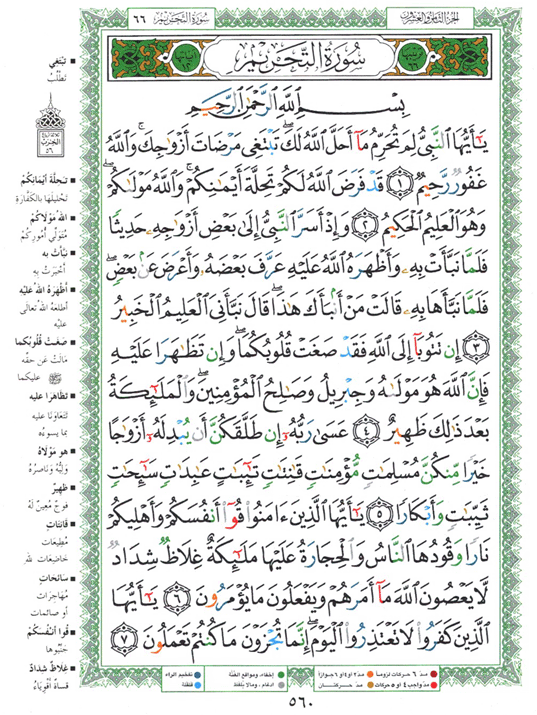 سُورَةُ التَّحْرِيم ٦٦
الجُزءُ الثَّامِنُ وَالعِشْرُونَ
سُورَةُ التَّحْرِيمِ
بِسْمِ ٱللَّهِ ٱلرَّحْمَٰنِ ٱلرَّحِيمِ
يَـٰٓأَيُّهَا ٱلنَّبِىُّ لِمَ تُحَرِّمُ مَآ أَحَلَّ ٱللَّهُ لَكَ ۖ تَبْتَغِى مَرْضَاتَ أَزْوَٰجِكَ ۚ وَٱللَّهُ
غَفُورٌ رَّحِيمٌ ١ قَدْ فَرَضَ ٱللَّهُ لَكُمْ تَحِلَّةَ أَيْمَـٰنِكُمْ ۚ وَٱللَّهُ مَوْلَىٰكُمْ ۖ
وَهُوَ ٱلْعَلِيمُ ٱلْحَكِيمُ ٢ وَإِذْ أَسَرَّ ٱلنَّبِىُّ إِلَىٰ بَعْضِ أَزْوَٰجِهِۦ حَدِيثًا
فَلَمَّا نَبَّأَتْ بِهِۦ وَأَظْهَرَهُ ٱللَّهُ عَلَيْهِ عَرَّفَ بَعْضَهُۥ وَأَعْرَضَ عَنۢ بَعْضٍ ۖ
فَلَمَّا نَبَّأَهَا بِهِۦ قَالَتْ مَنْ أَنۢبَأَكَ هَـٰذَا ۖ قَالَ نَبَّأَنِىَ ٱلْعَلِيمُ ٱلْخَبِيرُ
٣ إِن تَتُوبَآ إِلَى ٱللَّهِ فَقَدْ صَغَتْ قُلُوبُكُمَا ۖ وَإِن تَظَـٰهَرَا عَلَيْهِ
فَإِنَّ ٱللَّهَ هُوَ مَوْلَىٰهُ وَجِبْرِيلُ وَصَـٰلِحُ ٱلْمُؤْمِنِينَ ۖ وَٱلْمَلَـٰٓئِكَةُ
بَعْدَ ذَٰلِكَ ظَهِيرٌ ٤ عَسَىٰ رَبُّهُۥٓ إِن طَلَّقَكُنَّ أَن يُبْدِلَهُۥٓ أَزْوَٰجًا
خَيْرًا مِّنكُنَّ مُسْلِمَـٰتٍ مُّؤْمِنَـٰتٍ قَـٰنِتَـٰتٍ تَـٰٓئِبَـٰتٍ عَـٰبِدَٰتٍ سَـٰٓئِحَـٰتٍ
ثَيِّبَـٰتٍ وَأَبْكَارًا ٥ يَـٰٓأَيُّهَا ٱلَّذِينَ ءَامَنُوا۟ قُوٓا۟ أَنفُسَكُمْ وَأَهْلِيكُمْ
نَارًا وَقُودُهَا ٱلنَّاسُ وَٱلْحِجَارَةُ عَلَيْهَا مَلَـٰٓئِكَةٌ غِلَاظٌ شِدَادٌ
لَّا يَعْصُونَ ٱللَّهَ مَآ أَمَرَهُمْ وَيَفْعَلُونَ مَا يُؤْمَرُونَ ٦ يَـٰٓأَيُّهَا
ٱلَّذِينَ كَفَرُوا۟ لَا تَعْتَذِرُوا۟ ٱلْيَوْمَ ۖ إِنَّمَا تُجْزَوْنَ مَا كُنتُمْ تَعْمَلُونَ ٧
تَبْتَغِي
تَطْلُبُ
تَحِلَّةَ أَيْمَانِكُمْ
تَحْلِيلَهَا بِالكَفَّارَةِ
اللهُ مَوْلَاكُمْ
مُتَوَلِّي أُمُورِكُمْ
نَبَّأَتْ بِهِ
أَخْبَرَتْ بِهِ
أَظْهَرَهُ اللهُ عَلَيْهِ
أَطْلَعَهُ اللهُ تَعَالَى
عَلَيْهِ
صَغَتْ قُلُوبُكُمَا
مَالَتْ عَنْ حَقِّهِ
ﷺ عليكما
تَظَاهَرَا عَلَيْهِ
تَتَعَاوَنَا عَلَيْهِ
بِمَا يَسُوءُهُ
هُوَ مَوْلَاهُ
وَلِيُّهُ وَنَاصِرُهُ
ظَهِيرٌ
فَوْجٌ مُعِينٌ لَهُ
قَانِتَاتٍ
مُطِيعَاتٍ
خَاضِعَاتٍ للهِ
سَائِحَاتٍ
مُهَاجِرَاتٍ
أَوْ صَائِمَاتٍ
قُوا أَنْفُسَكُمْ
جَنِّبُوهَا
غِلَاظٌ شِدَادٌ
قُسَاةٌ أَقْوِيَاءُ
مدّ ٦ حركات لزوماً مدّ ٢ او ٤ او ٦ جوازاً إخفاء، ومواقع الغنّة تفخيم الراء
مدّ واجب ٤ او ٥ حركات مدّ حركتان ادغام، ومالا يلفظ قلقلة
٥٦٠